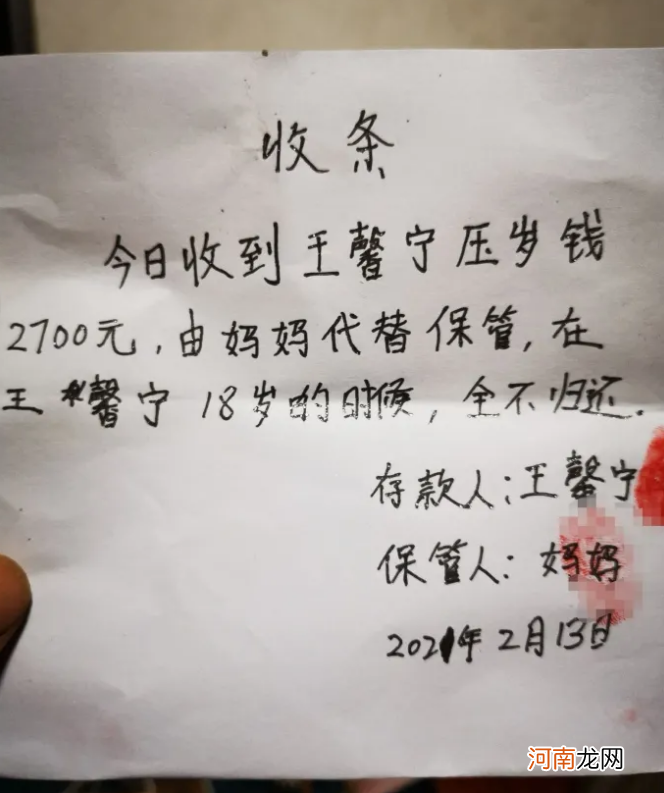 收条
今日收到王馨宁压岁钱
2700元，由妈妈代替保管，在
王馨宁18岁的时候，全不归还.
存款人：王馨宁
保管人：妈妈
2021年2月13日
河南龙网